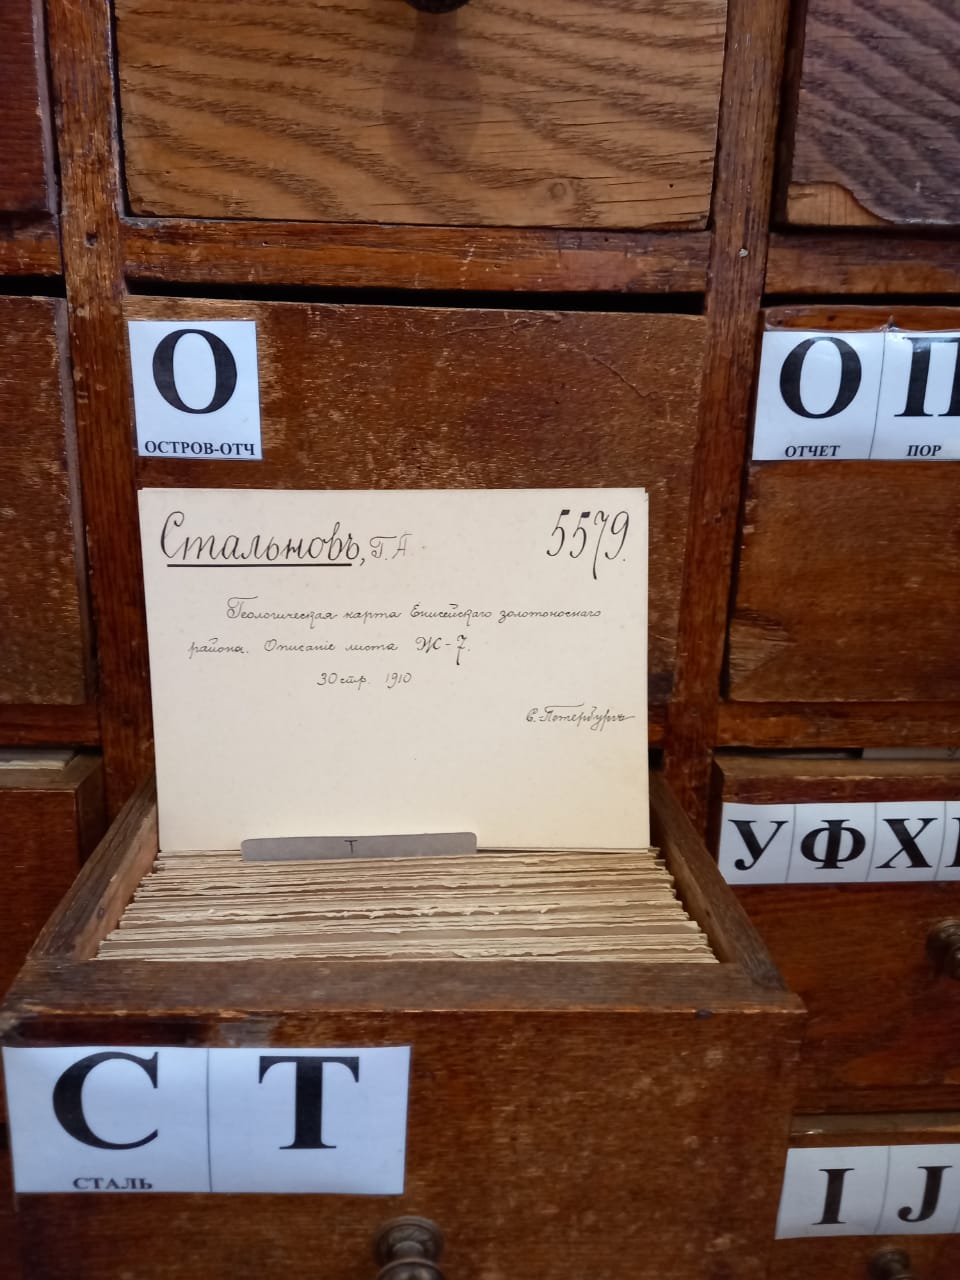 О
ОСТРОВ-ОТЧ
О П
ОТЧЕТ ПОР
Стальновъ, Г. А.
5579.
Геологическая карта Енисейскаго золотоноснаго
района. Описаніе листа Ж-7.
30 стр. 1910
С.-Петербургъ
Т
У Ф Х
С Т
СТАЛЬ
I J